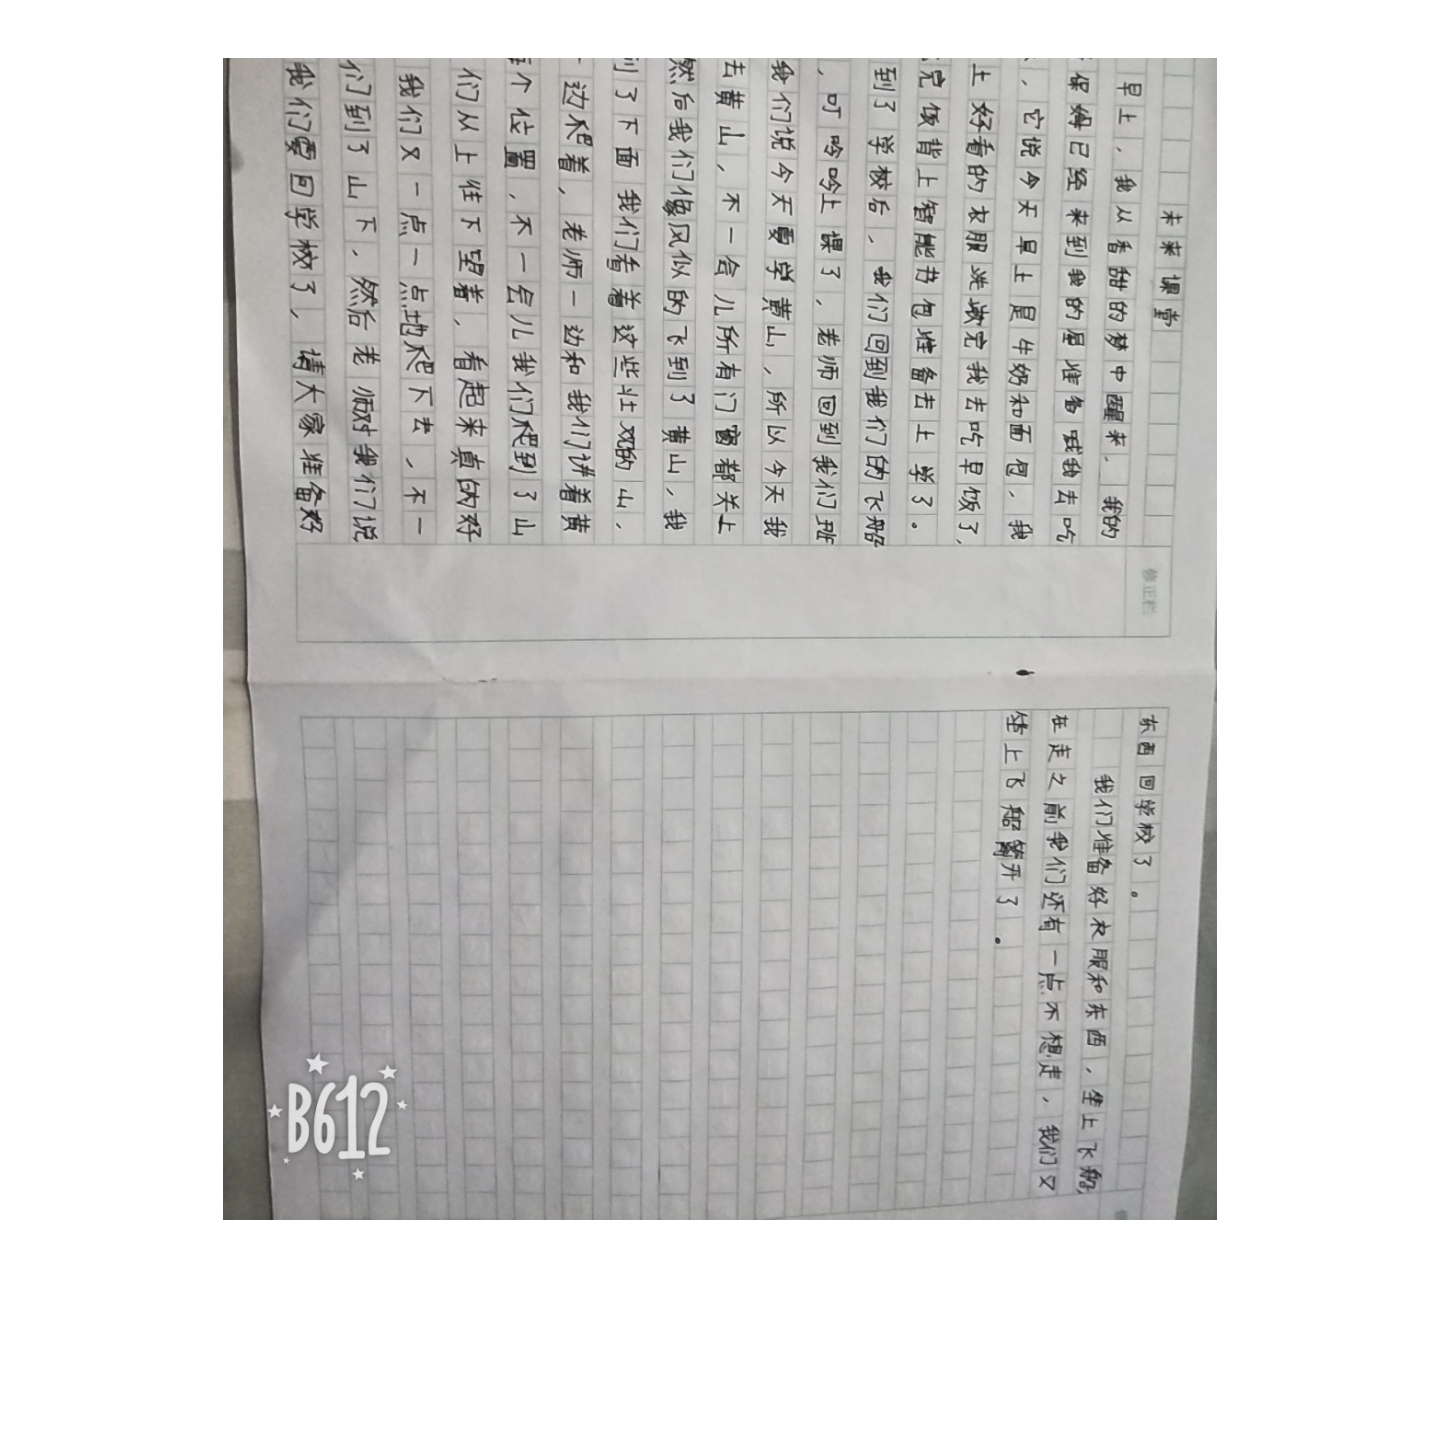 未来课堂
早上，我从香甜的梦中醒来，我的
保姆已经来到我的屋准备喊我去吃
，它说今天早上是牛奶和面包，我
上好看的衣服洗漱完我去吃早饭了，
完饭背上智能书包准备去上学了。
到了学校后，我们回到我们的飞船
，叮呤呤上课了，老师回到我们班
我们说今天要学黄山，所以今天我
去黄山，不一会儿所有门窗都关上
然后我们像风似的飞到了黄山，我
到了下面我们看着这些壮观的山，
一边爬着，老师一边和我们讲着黄
个位置，不一会儿我们爬到了山
们从上往下望着，看起来真的好
我们又一点一点地爬下去，不一
们到了山下，然后老师对我们说
我们要回学校了，请大家准备好
修正栏
东西回学校了。
我们准备好衣服和东西，坐上飞船，
在走之前我们还有一点不想走，我们又
坐上飞船离开了。
B612